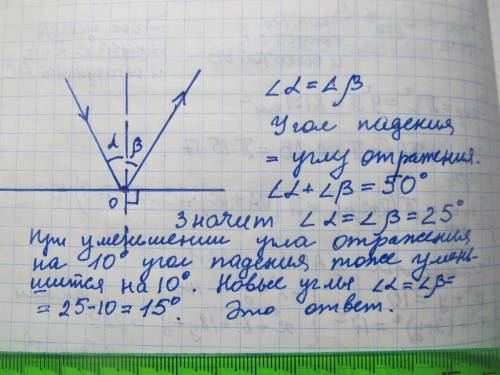 ∠α = ∠β
Угол падения
= углу отражения.
∠α + ∠β = 50°
α β
O
Значит ∠α = ∠β = 25°
При уменьшении угла отражения
на 10° угол падения тоже умень-
шится на 10°. Новые углы ∠α = ∠β =
= 25 - 10 = 15°. Это ответ.